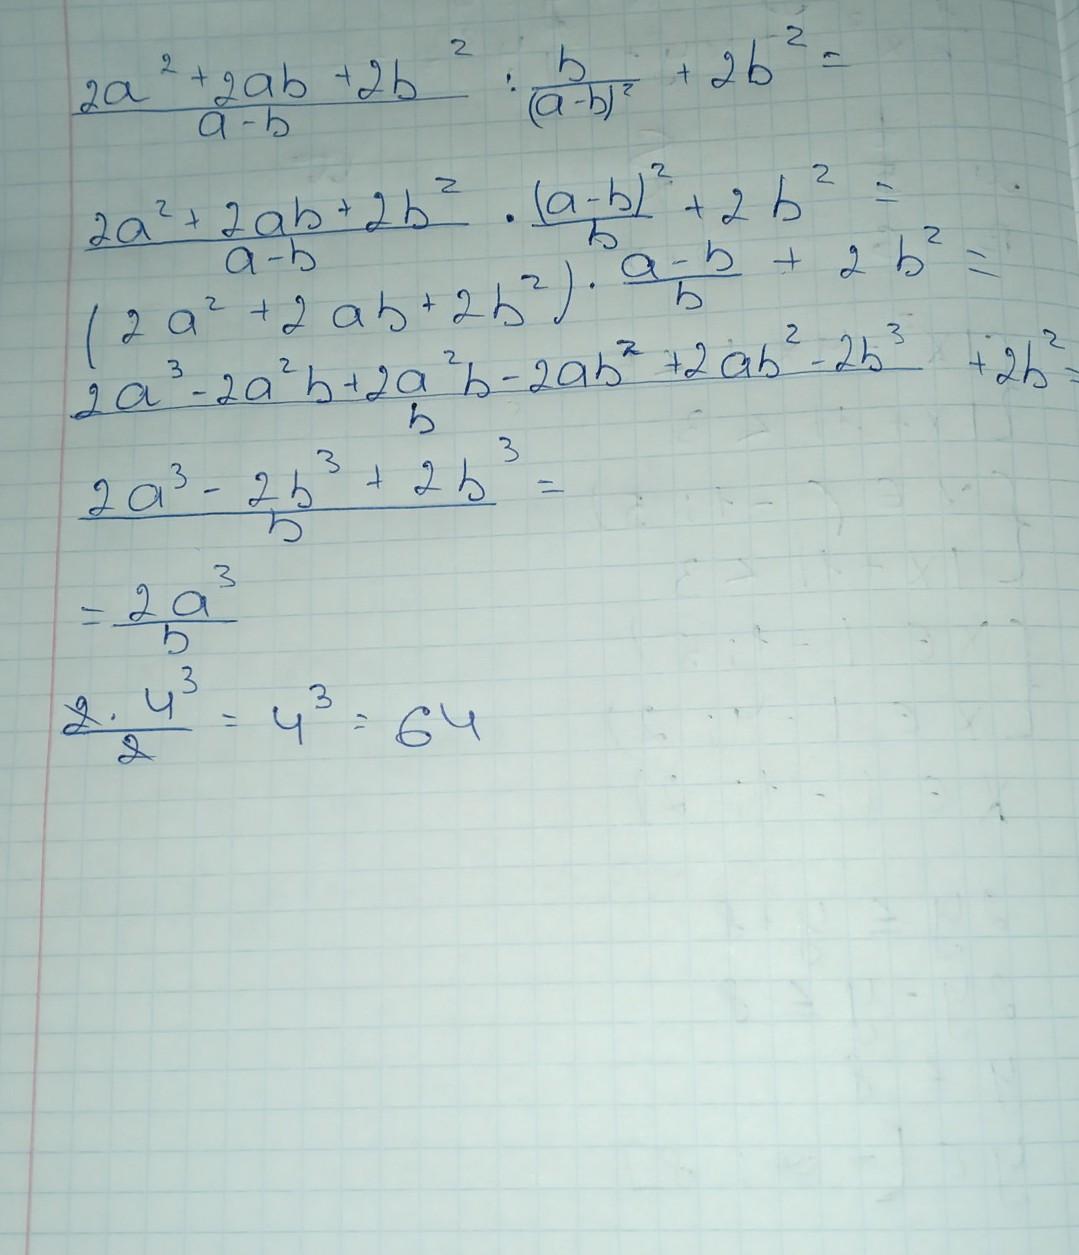 (2a² + 2ab + 2b²)/(a-b) : b/(a-b)² + 2b² =
(2a² + 2ab + 2b²)/(a-b) · (a-b)²/b + 2b² =
(2a² + 2ab + 2b²) · (a-b)/b + 2b² =
(2a³ - 2a²b + 2a²b - 2ab² + 2ab² - 2b³)/b + 2b² =
(2a³ - 2b³ + 2b³)/b =
= 2a³/b
(2 · 4³)/2 = 4³ = 64